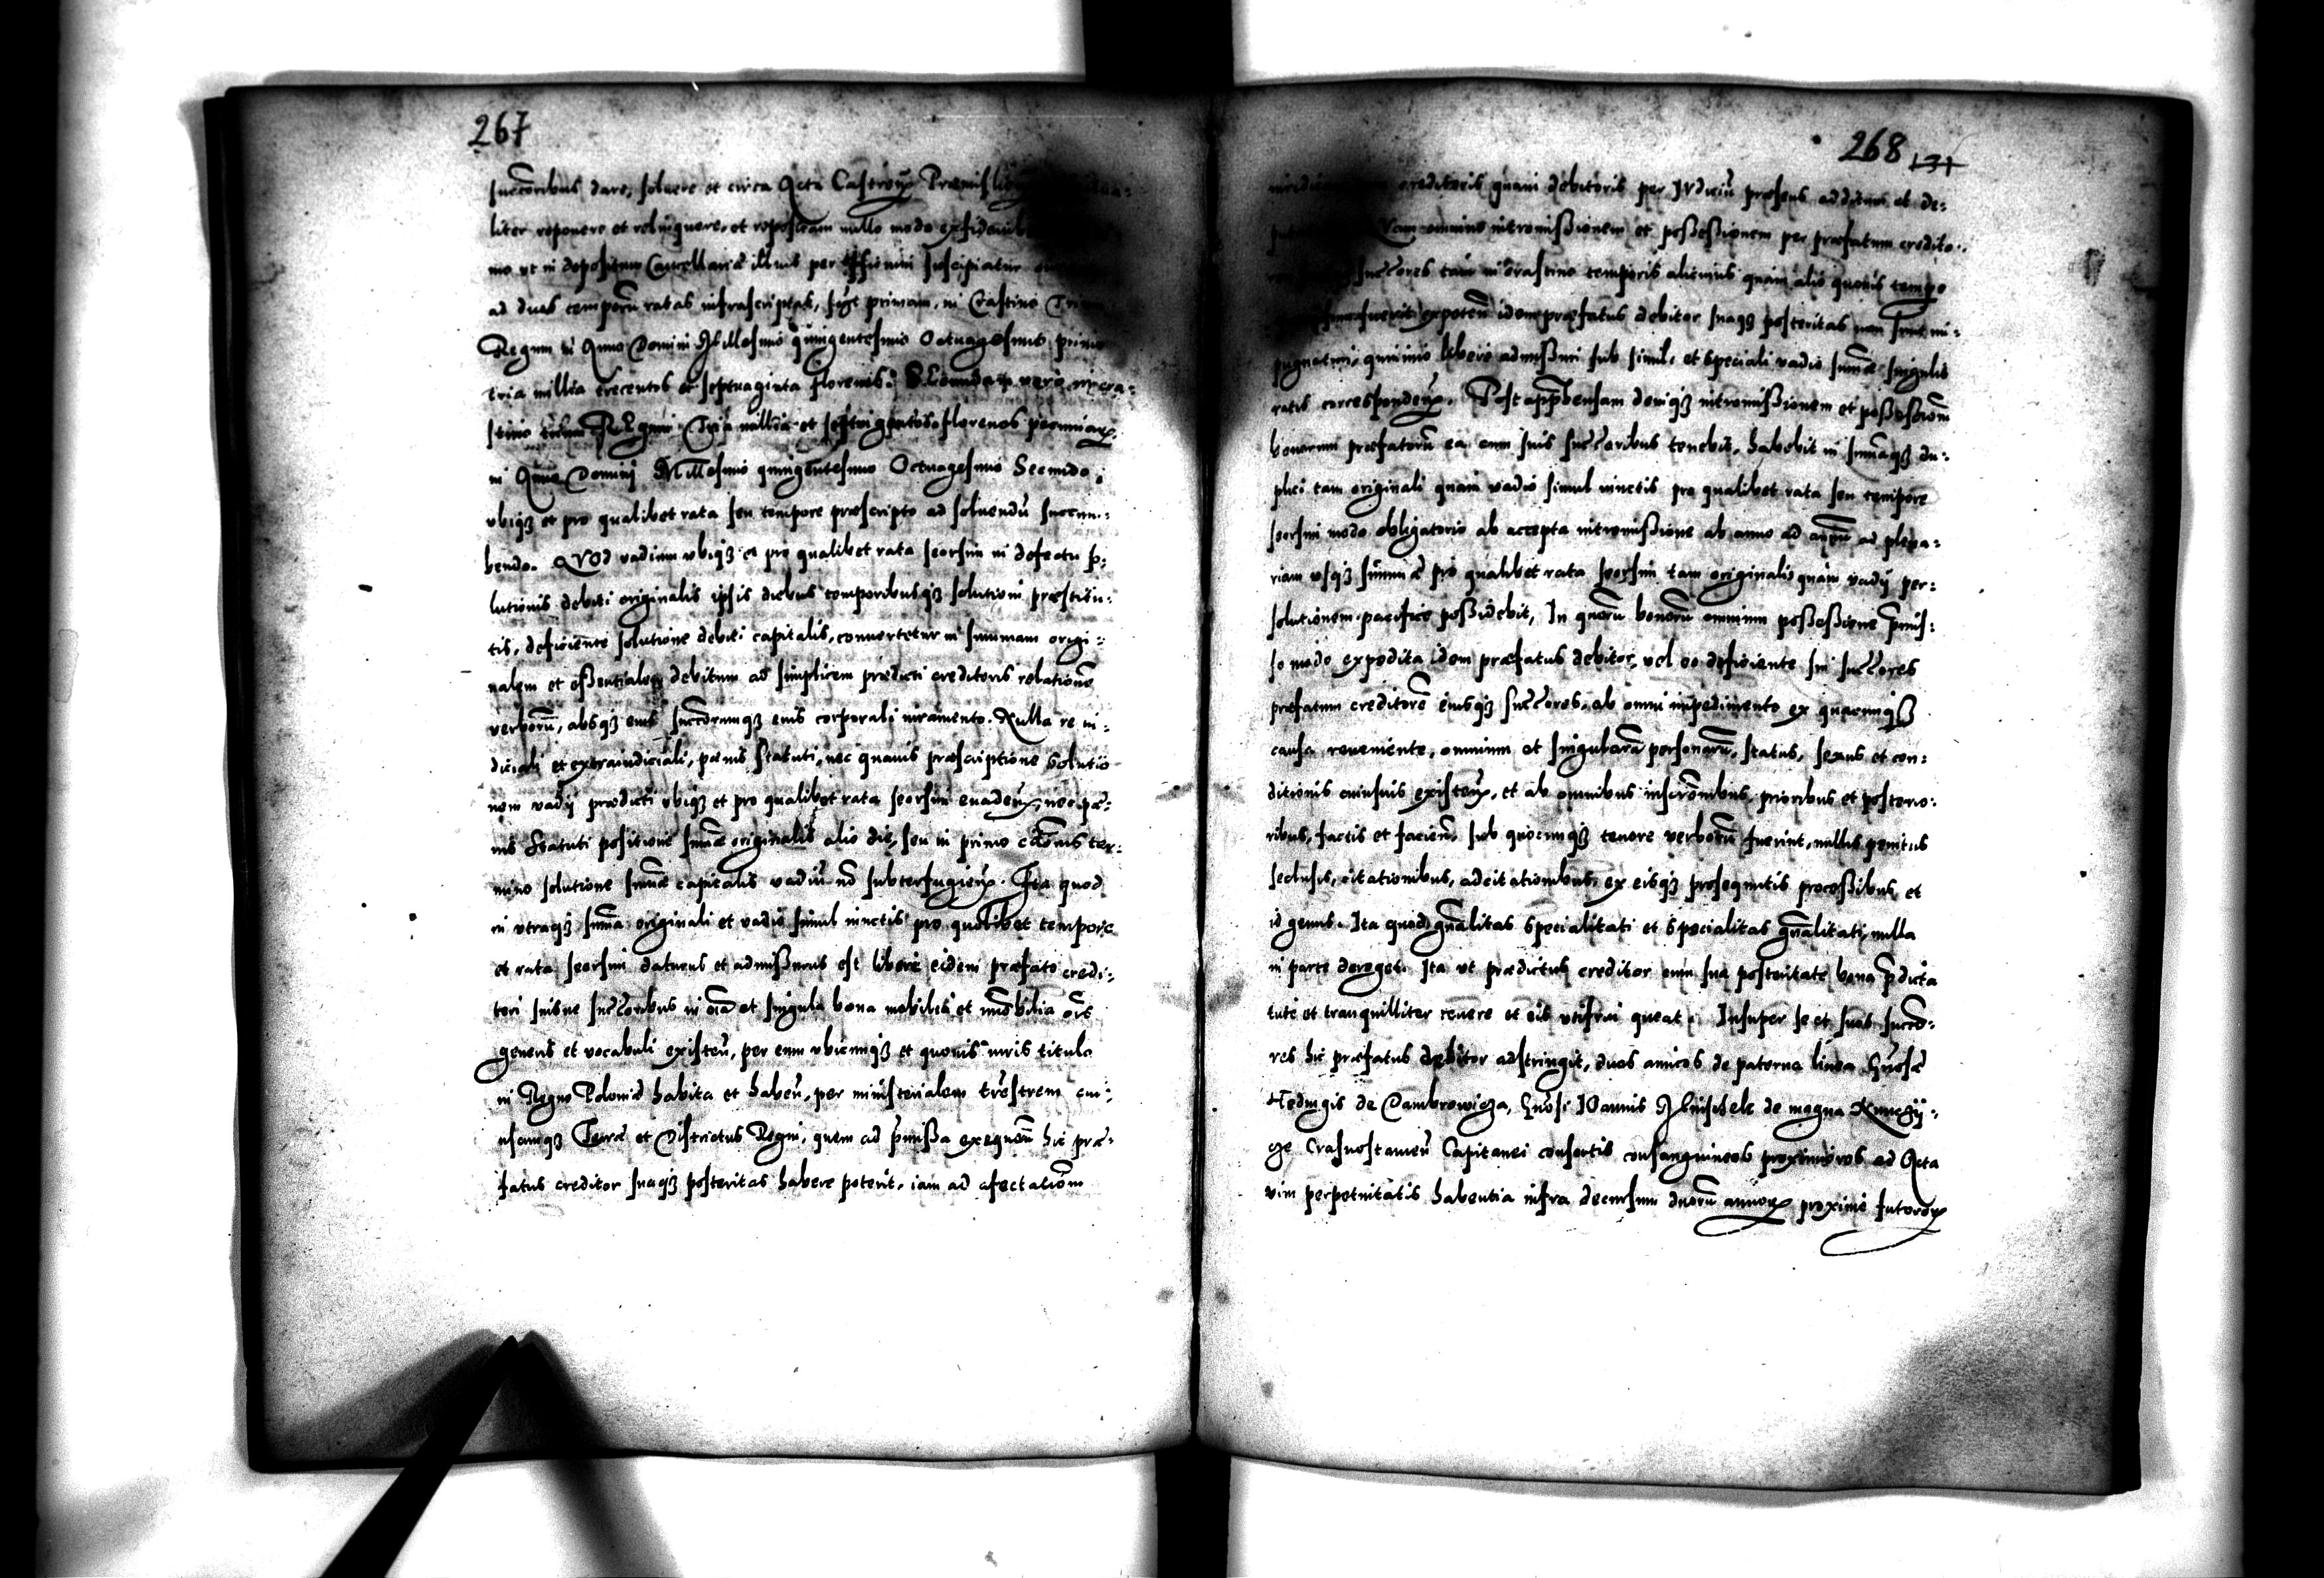 267
succoribus dare, soluere et circa Acta Castren Præmislien
liter reponere et relinquere, et repositam nullo modo
mo vt in depositum Cancellariæ illius per Officium suscipiatur
ad duas temporū ratas infrascriptas, primam, in Crastino
Regum in Anno Domini Millesimo quingentesimo Octuagesimo primo
tria millia trecentos et septuaginta florenos. Secundam vero in cra-
stino Regum Tria millia et florenos pecuniar
in Anno Dominj Millesimo quingentesimo Octuagesimo Secundo,
vbiqȝ et pro qualibet rata seu tempore præscripto ad soluendū succum-
bendo. QVOd vadium vbiqȝ et pro qualibet rata seorsim in defectu so-
lutionis debiti originalis ipsis diebus temporibusqȝ solutioni præstitu-
tis, deficiente solutione debiti capitalis, conuertetur in summam origi-
nalem et essentialem debitum ad simplicem prædicti creditoris relationē
verborū, absqȝ eius succorumqȝ eius corporali iuramento. Nulla re iu-
diciali et extraiudiciali, pænis statuti, nec quauis præscriptione solutio
nem vadij prædicti vbiqȝ et pro qualibet rata seorsim euaden nec pæ-
nis Statuti positione sumæ originalis alio die, seu in primo citōnis ter-
mino solutione sumæ capitalis vadiū nō subterfugien. Ita quod
in vtraqȝ suma originali et vadio simul iunctis pro quolibet tempore
et rata seorsim daturus et admissurus est libere eidem præfato credi-
tori suisue succoribus in oīa et singula bona mobilia et imōbilia oīs
generis et vocabuli existeñ, per eum vbicunqȝ et quouis iuris titulo
in Regno Poloniæ habita et habeñ, per ministerialem trēstrem cui-
uscunqȝ Terræ et Districtus Regni, quem ad præmissa exequeñ hic præ-
fatus creditor suaqȝ posteritas habere poterit, iam ad afectatiōm
268 131
creditoris quam debitoris per IVdiciū præsens additum et de-
omnino intromissionem et possessionem per præfatum credito-
succores tam in crastino temporis alicuius quam alio quouis tempo
expoteñ idem præfatus debitor suaqȝ posteritas non sunt im-
pugnaturi, quinimo libere admissuri sub simili et speciali vadio sumæ singulis
ratis corresponden. Post apprehensam deniqȝ intromissionem et possessiom
bonorum præfatorū ea cum suis succoribus tenebit, habebit in sumaqȝ du-
plici tam originali quam vadio simul iunctis pro qualibet rata seu tempore
seorsim modo obligatorio ab accepta intromissione ab anno ad annū ad plena-
riam vsqȝ sumæ pro qualibet rata seorsim tam originalis quam vadij per-
solutionem pacifice possidebit, In quorū bonorū omnium possessione præmis-
so modo expedita idem præfatus debitor, vel eo deficiente sui succores
præfatum creditorē eiusqȝ succores, ab omni impedimento ex quacunqȝ
causa reueniente, omnium et singularū personarū, status, sexus et con-
ditionis cuiusuis existen, et ab omnibus inscrōnibus prioribus et posterio-
ribus, factis et facieñ, sub quocunqȝ tenore verborū fuerint, nullis penitus
seclusis, citationibus, adcitationibus, ex eisqȝ prosequutis processibus et
id genus. Ita quod gñalitas specialitati et specialitas gñalitati, nulla
in parte deroget. Ita vt prædictus creditor cum sua posteritate bona prædicta
tute et tranquilliter tenere et eis vtifrui queat. Insuper se et suos succo-
res hic præfatus debitor adstringit, duos amicos de paterna linea Gñosæ
Hedwigis de Dambrowicza, Gñosi IOannis Mnischek de magna Kunczÿ-
cze Crasnostauieñ Capitanei consortis consanguineos proximiores ad Acta
vim perpetuitatis habentia infra decursum duorū annor proxime futuror